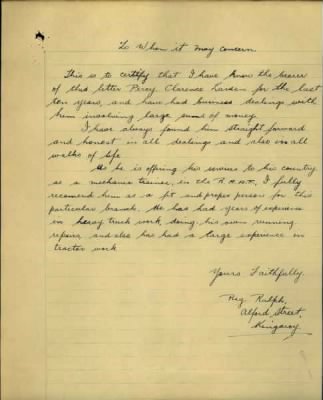 To Whom it may concern
This is to certify that I have know the bearer
of this letter Percy Clarence Larden for the last
ten years, and have had business dealings with
him involving large sums of money.
I have always found him straight forward
and honest in all dealings and also in all
walks of life
As he is offering his services to his country
as a mechanic trainee, in the R.A.A.F, I fully
recomend him as a fit and proper person for this
particular branch. He has had years of experience
in heavy truck work, doing his own running
repairs, and also has had a large experience in
tractor work
Yours Faithfully.
Reg Ralph,
Alford Street,
Kingaroy